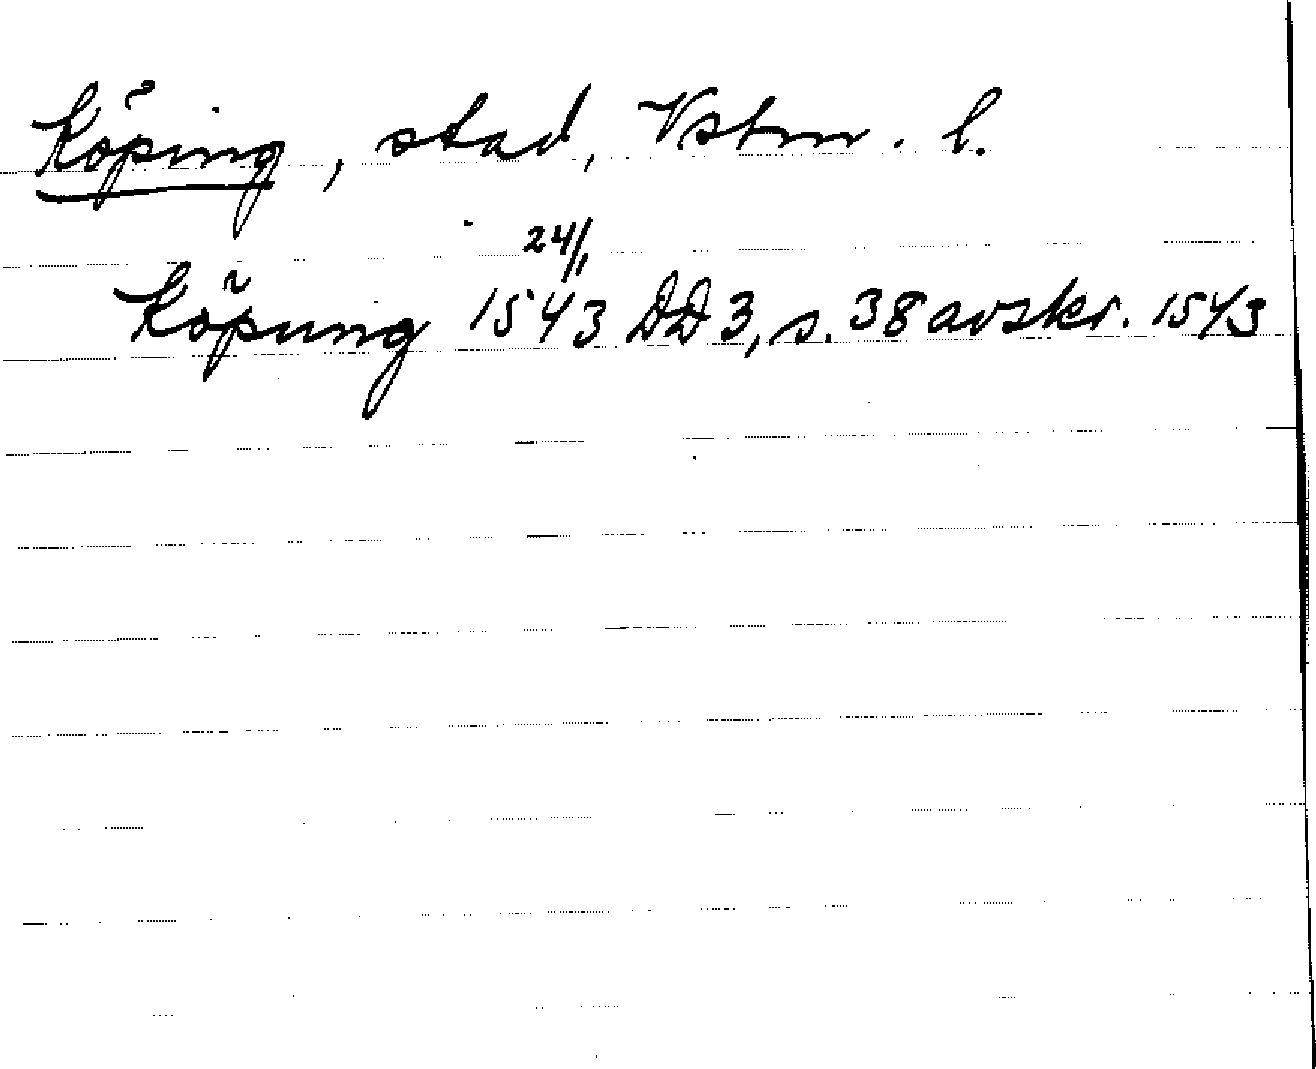 Köping, stad, Vstm. l.
Köpung 1543 24/1 DD 3, s. 38 avskr. 1543